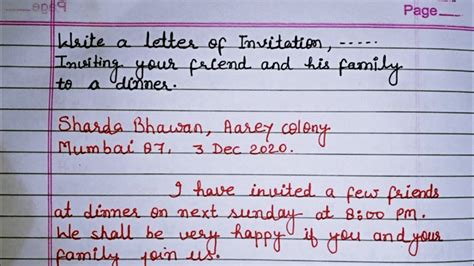 Page
Page
Write a letter of Invitation, -----
Inviting your friend and his family
to a dinner.
Sharda Bhawan, Aarey colony
Mumbai 07. 3 Dec 2020.
I have invited a few friends
at dinner on next sunday at 8:00 PM.
We shall be very happy if you and your
family join us.